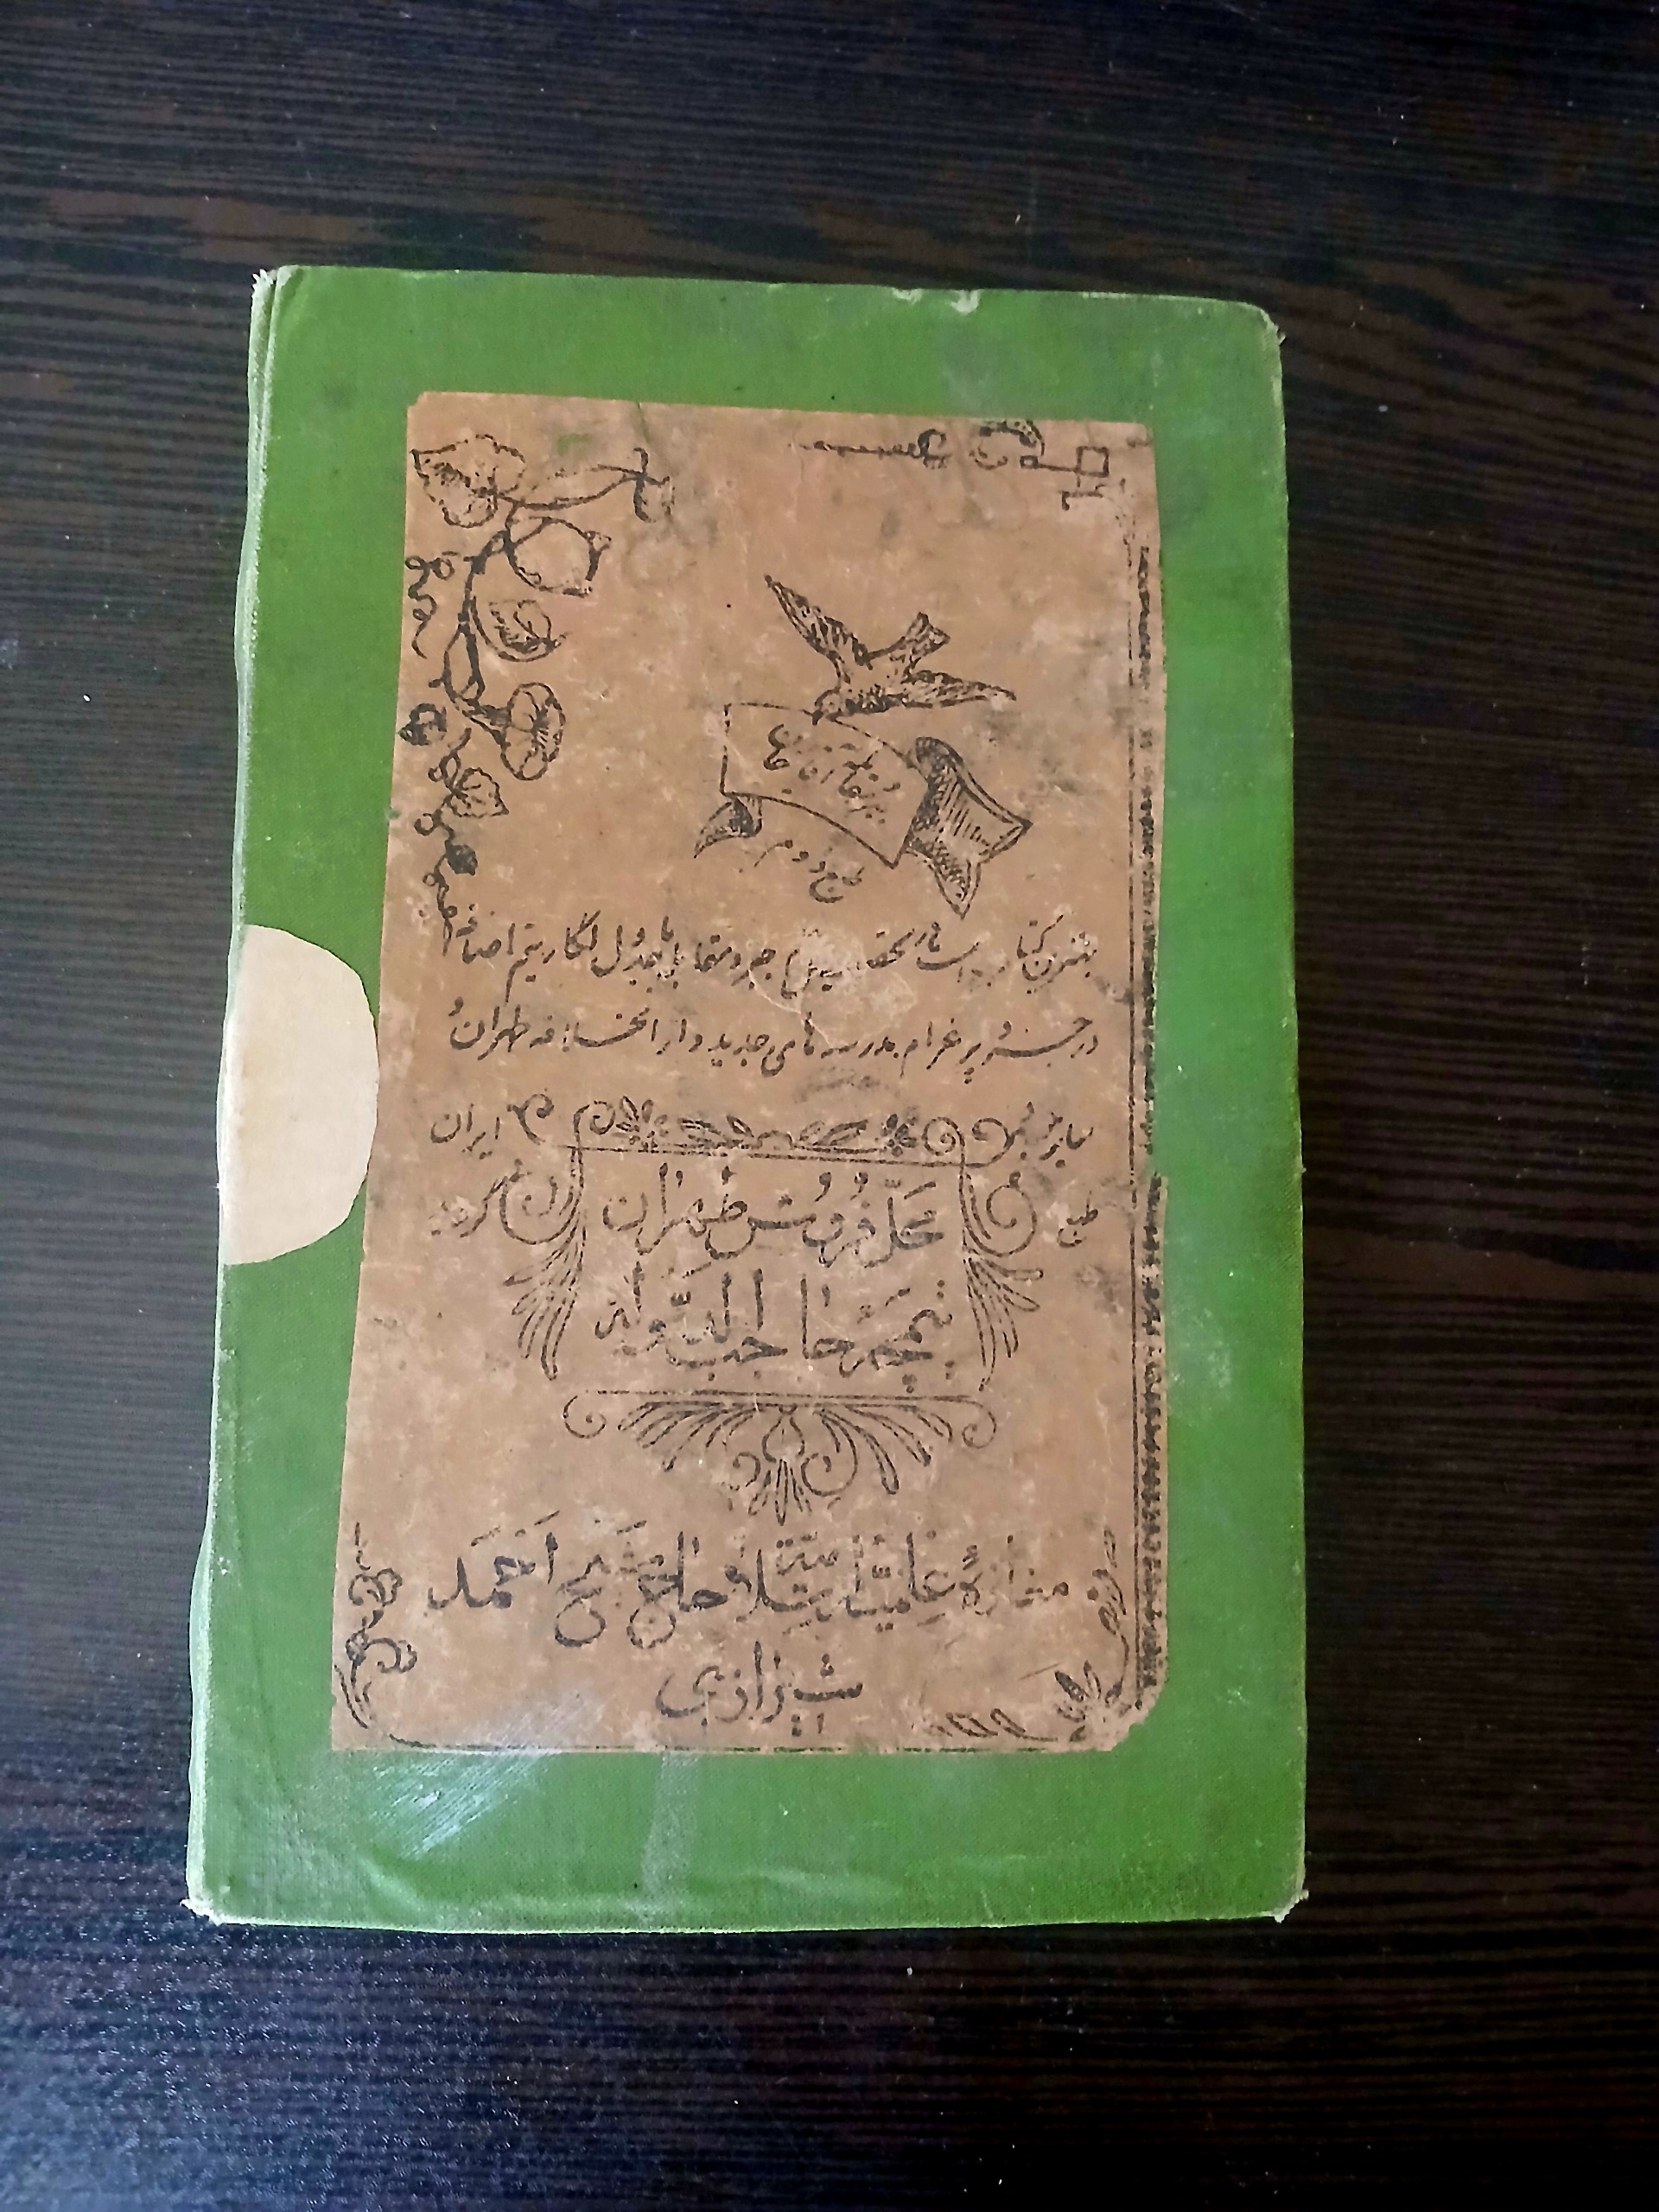 طبع دوم
بهترین کتاب جبر و مقابله با جدول لگاریتم اضافه
در جزو پرغرام مدرسه‌های جدید دارالخلافه طهران و
سایر ایران
طبع گردید
محل فروش طهران
تیمچه حاجب الدوله
مغازه علمیه اسلامیه حاج شیخ احمد
شیرازی